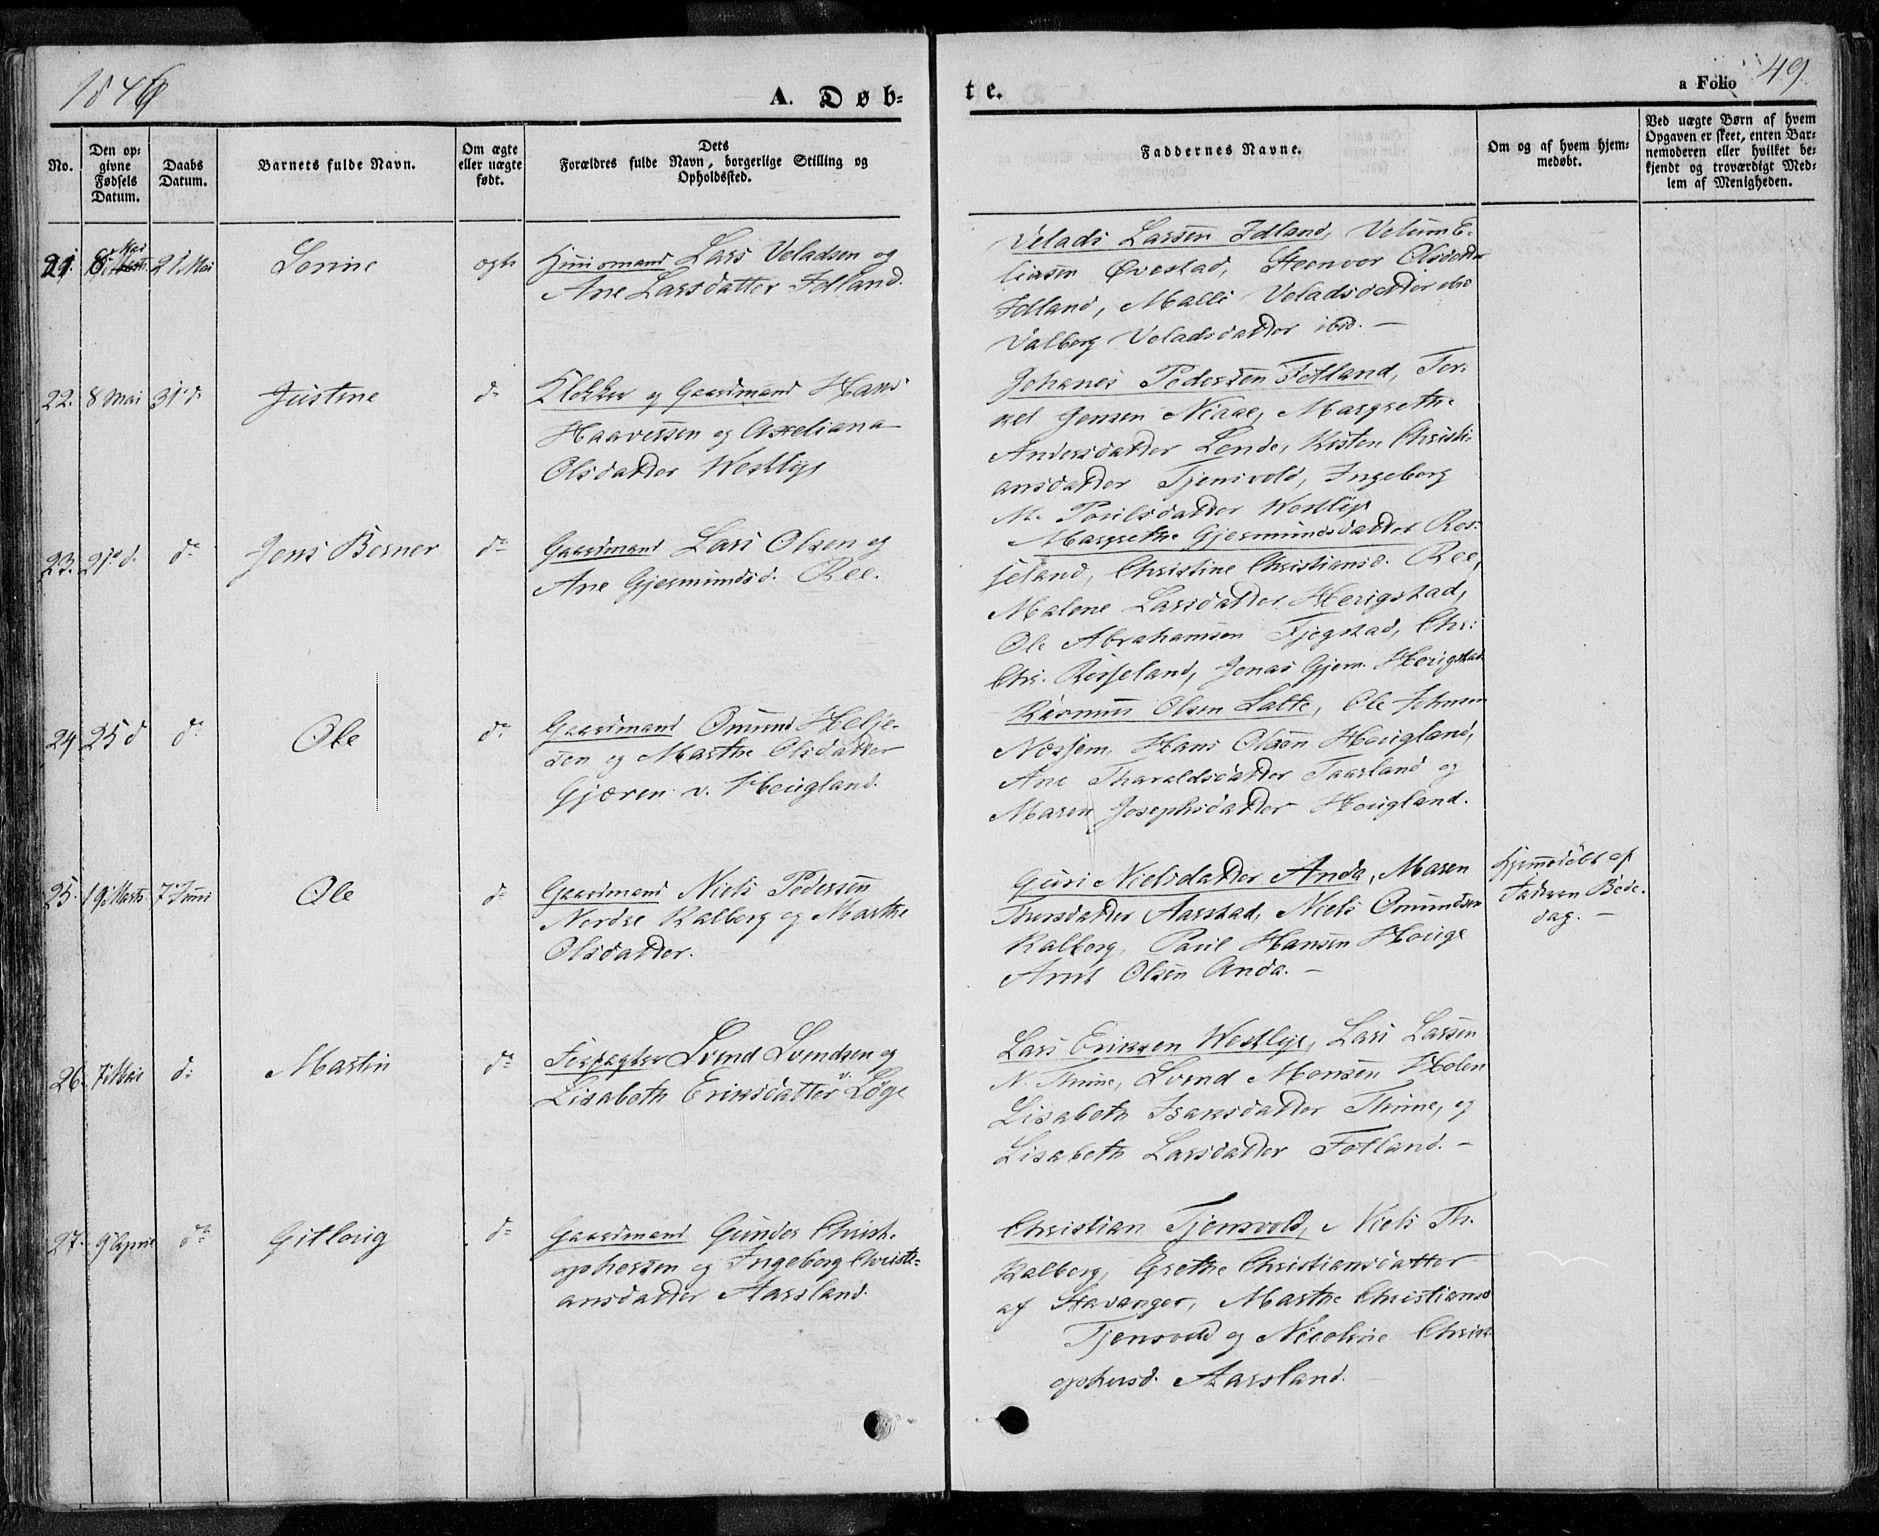 1846
A. Døb-
te.
a Folio 49.
No.
Den op-
givne
Fødsels
Datum.
Daabs
Datum.
Barnets fulde Navn.
Om ægte
eller uægte
født.
Dets
Forældres fulde Navn, borgerlige Stilling og
Opholdssted.
Faddernes Navne.
Om og af hvem hjem-
medøbt.
Ved uægte Børn af hvem
Opgaven er skeet, enten Bar-
nemoderen eller hvilket be-
kjendt og troværdigt Med-
lem af Menigheden.
21. 8 Mai 21 Mai Serine ægte
Huusmand Lars Veladsen og
Ane Larsdatter Idland.
Velads Larsen Idland, Velum E-
liasen Øvestad, Steenvor Olsdatter
Idland, Malli Veladsdatter ibid
Valborg Veladsdatter ibid. —
22. 8 Mai 31 d. Justine d.
Klokker og Gaardmand Hans
Haaversen og Axeliana
Olsdatter Westlye
Johanes Pedersen Fotland, Tor-
kel Jensen Niaae, Margrethe
Andersdatter Lende, Kisten Christi-
ansdatter Tjensvold, Ingeborg
M. Poulsdatter Westlye
23. 21 d. d. Jens Berner d.
Gaardmand Lars Olsen og
Ane Gjermundsd. Ree.
Margrethe Gjermundsdatter Ros-
seland, Christine Christiansd. Ree,
Malene Larsdatter Herigstad,
Ole Abrahamsen Tjegstad, Chr:
Chr. Rosseland, Jonas Gjerm. Herigstad
24 25 d d. Ole d.
Gaardmand Omund Helje-
sen og Marthe Olsdatter
Gjæren v. Hougland.
Rasmus Olsen Laate, Ole Johnsen
Næsjem, Hans Olsen Hougland,
Ane Tharaldsdatter Taarland og
Maren Josephsdatter Hougland.
25. 19 Marts 7 Juni Ole d.
Gaardmand Niels Pedersen
Nordre Kalberg og Marthe
Olsdatter.
Guri Nielsdatter Anda, Maren
Thorsdatter Aarstad, Niels Omundsen
Kalberg, Poul Hansen Houge
Arnt Olsen Anda. —
Hjemmedøbt af
Faderen Bede-
dag. —
26. 7 Mai d. Martin d.
Forpagter Svend Svendsen og
Lisabeth Eriksdatter v. Løge
Lars Eriksen Westlye, Lars Larsen
N. Thime, Svend Monsen Holen
Lisabeth Isaksdatter Thime, og
Lisabeth Larsdatter Fotland. —
27. 9 d.
Gaardmand Gunder Christ-
ophersen og Ingeborg Christi-
ansdatter Aarsland.
Christian Tjensvold, Niels Th.
Kalberg, Grethe Christiansdatter
af Stavanger, Marthe Christiansd
Tjensvold og Nicoline Christ-
ophersd. Aarsland.